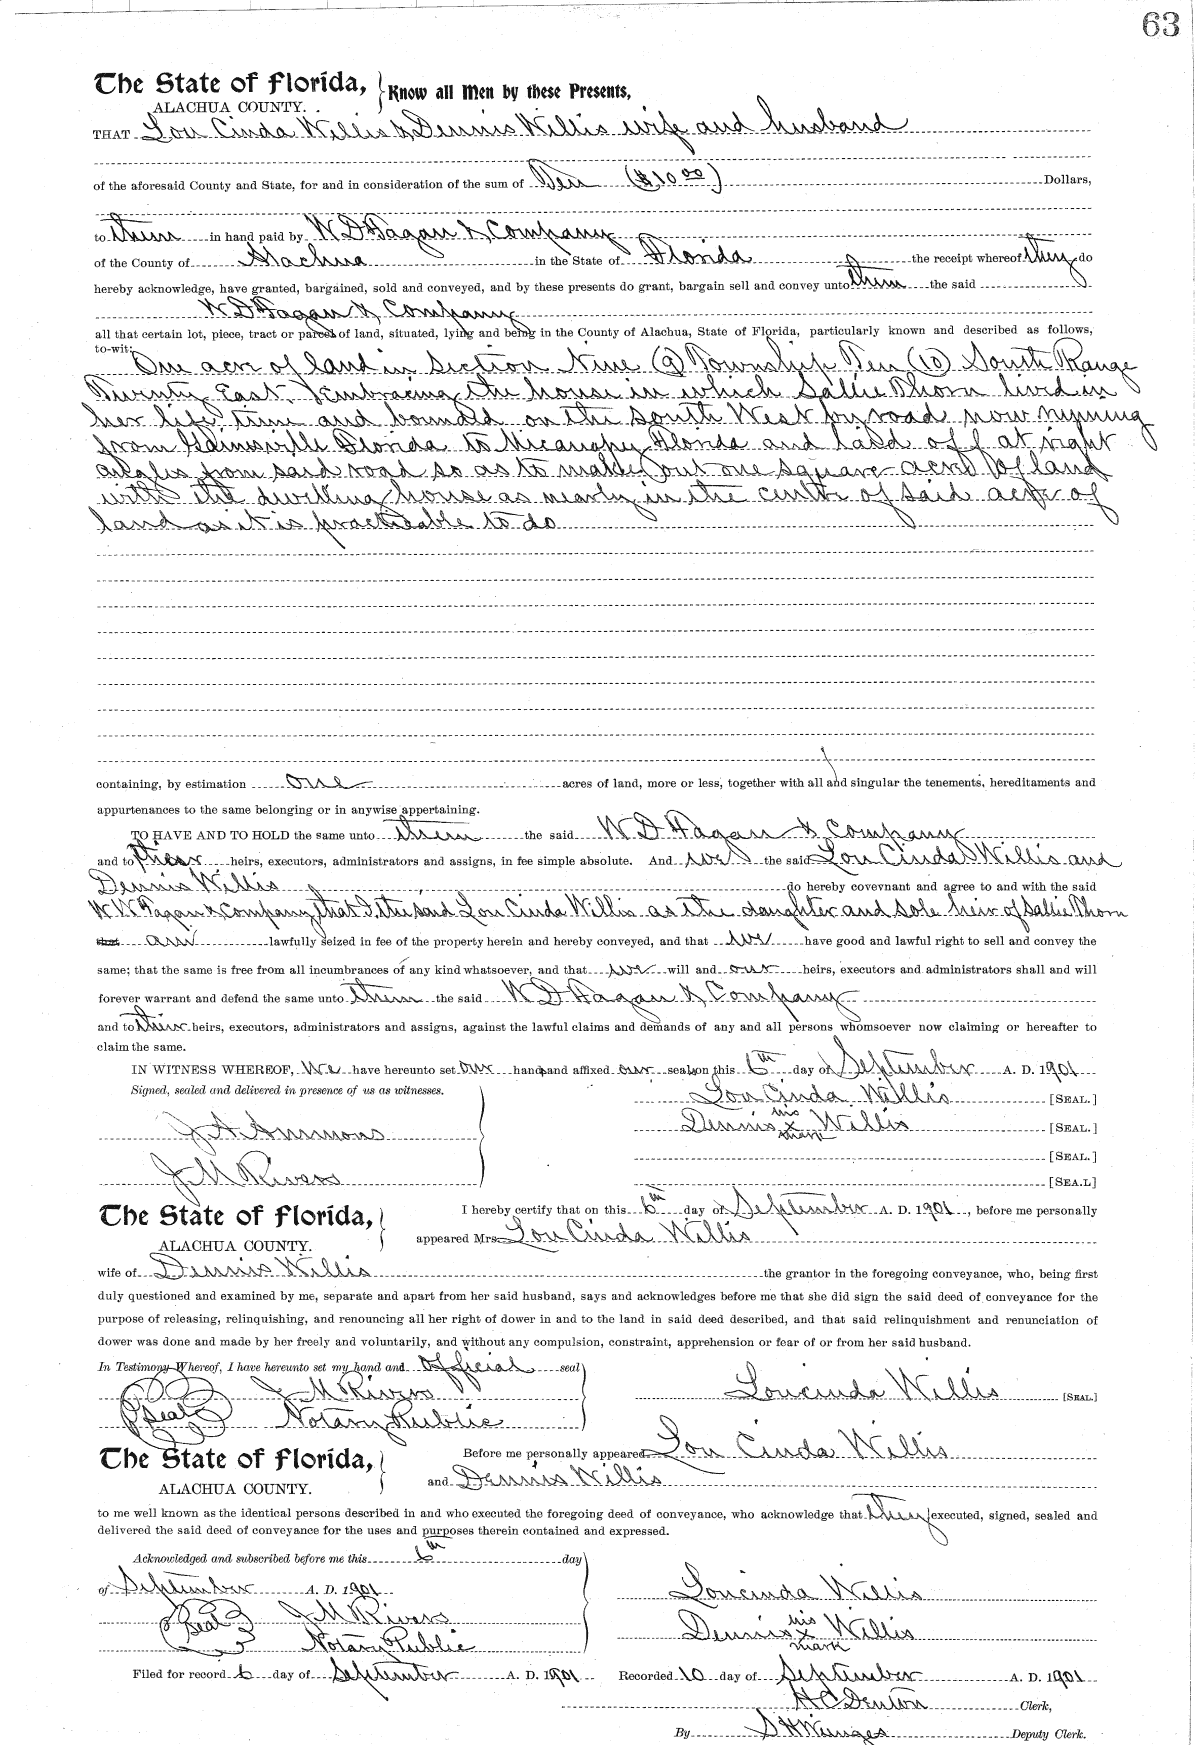 63
The State of Florida, Know all Men by these Presents,
ALACHUA COUNTY.
THAT Lou Cinda Willis & Dennis Willis wife and husband
of the aforesaid County and State, for and in consideration of the sum of Ten ($10.00) Dollars,
to them in hand paid by W D Fagan & Company
of the County of Alachua in the State of Florida the receipt whereof they do
hereby acknowledge, have granted, bargained, sold and conveyed, and by these presents do grant, bargain sell and convey unto them the said
W D Fagan & Company
all that certain lot, piece, tract or parcel of land, situated, lying and being in the County of Alachua, State of Florida, particularly known and described as follows,
to-wit:
One acre of land in Section Nine (9) Township Ten (10) South Range
Twenty East. Embracing the house in which Sallie Thorn lived in
her life time and bounded on the South West by road now running
from Gainsville Florida to Micanopy Florida and laid off at right
angles from said road so as to make out one square acre of land
with the dwelling house as nearly in the center of said acre of
land as it is practicable to do
containing, by estimation one acres of land, more or less, together with all and singular the tenements, hereditaments and
appurtenances to the same belonging or in anywise appertaining.
TO HAVE AND TO HOLD the same unto them the said W D Fagan & Company
and to their heirs, executors, administrators and assigns, in fee simple absolute. And we the said Lou Cinda Willis and
Dennis Willis do hereby covevnant and agree to and with the said
W W Fagan & Company that I the said Lou Cinda Willis as the daughter and sole heir of Sallie Thorn
am lawfully seized in fee of the property herein and hereby conveyed, and that we have good and lawful right to sell and convey the
same; that the same is free from all incumbrances of any kind whatsoever, and that we will and our heirs, executors and administrators shall and will
forever warrant and defend the same unto them the said W D Fagan & Company
and to their heirs, executors, administrators and assigns, against the lawful claims and demands of any and all persons whomsoever now claiming or hereafter to
claim the same.
IN WITNESS WHEREOF, We have hereunto set our hands and affixed our seals on this 6th day of September A. D. 1901
Signed, sealed and delivered in presence of us as witnesses.
Lou Cinda Willis [SEAL.]
J A Ammons
Dennis his x mark Willis [SEAL.]
[SEAL.]
J M Rivers
[SEA.L]
The State of Florida, I hereby certify that on this 6th day of September A. D. 1901, before me personally
ALACHUA COUNTY. appeared Mrs. Lou Cinda Willis
wife of Dennis Willis the grantor in the foregoing conveyance, who, being first
duly questioned and examined by me, separate and apart from her said husband, says and acknowledges before me that she did sign the said deed of conveyance for the
purpose of releasing, relinquishing, and renouncing all her right of dower in and to the land in said deed described, and that said relinquishment and renunciation of
dower was done and made by her freely and voluntarily, and without any compulsion, constraint, apprehension or fear of or from her said husband.
In Testimony Whereof, I have hereunto set my hand and official seal
J M Rivers Loucinda Willis [SEAL.]
Seal Notary Public
The State of Florida, Before me personally appeared Lou Cinda Willis
ALACHUA COUNTY. and Dennis Willis
to me well known as the identical persons described in and who executed the foregoing deed of conveyance, who acknowledge that they executed, signed, sealed and
delivered the said deed of conveyance for the uses and purposes therein contained and expressed.
Acknowledged and subscribed before me this 6th day
of September A. D. 1901 Loucinda Willis
Seal J M Rivers Dennis his x mark Willis
Notary Public
Filed for record 6 day of September A. D. 1901 Recorded 10 day of September A. D. 1901
H C Denton Clerk,
By S H Wienges Deputy Clerk.